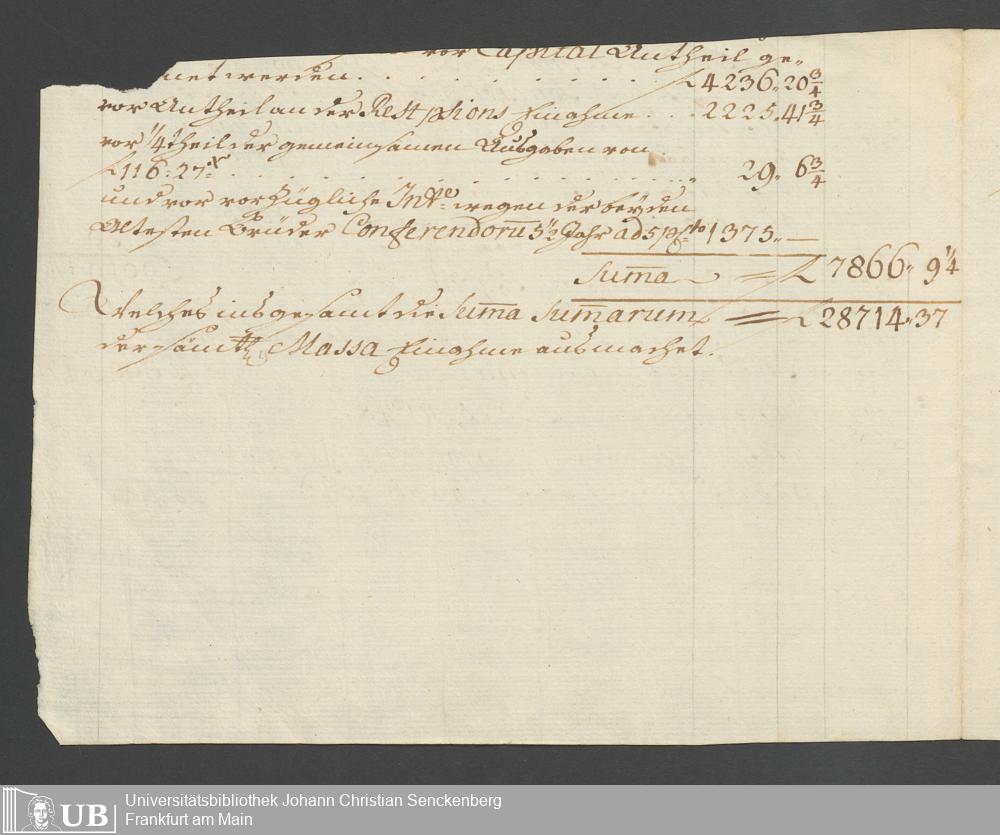 vor Capital Antheil ge-
net werden. . . . . . . . . . . . f 4236.. 20 3/4
vor Antheil an der Restptions Einahme . . . 2225.. 41 3/4
vor 1/4 theil der gemeinsamen Ausgaben von
f 116: 27. xr . . . . . . . . . . . . 29.. 6 3/4
und vor vorzügliche Inte: wegen der beyden
Altesten Brüder Conferendoru̅ 5 1/2 Jahr ad 5 pCto 1375.. —
Sum̅a = f 7866.. 9 1/4
Welches insgesamt die Sum̅a Sum̅arum = f 28714.. 37
der sämtl Massa Einahme ausmachet.
UB
Universitätsbibliothek Johann Christian Senckenberg
Frankfurt am Main